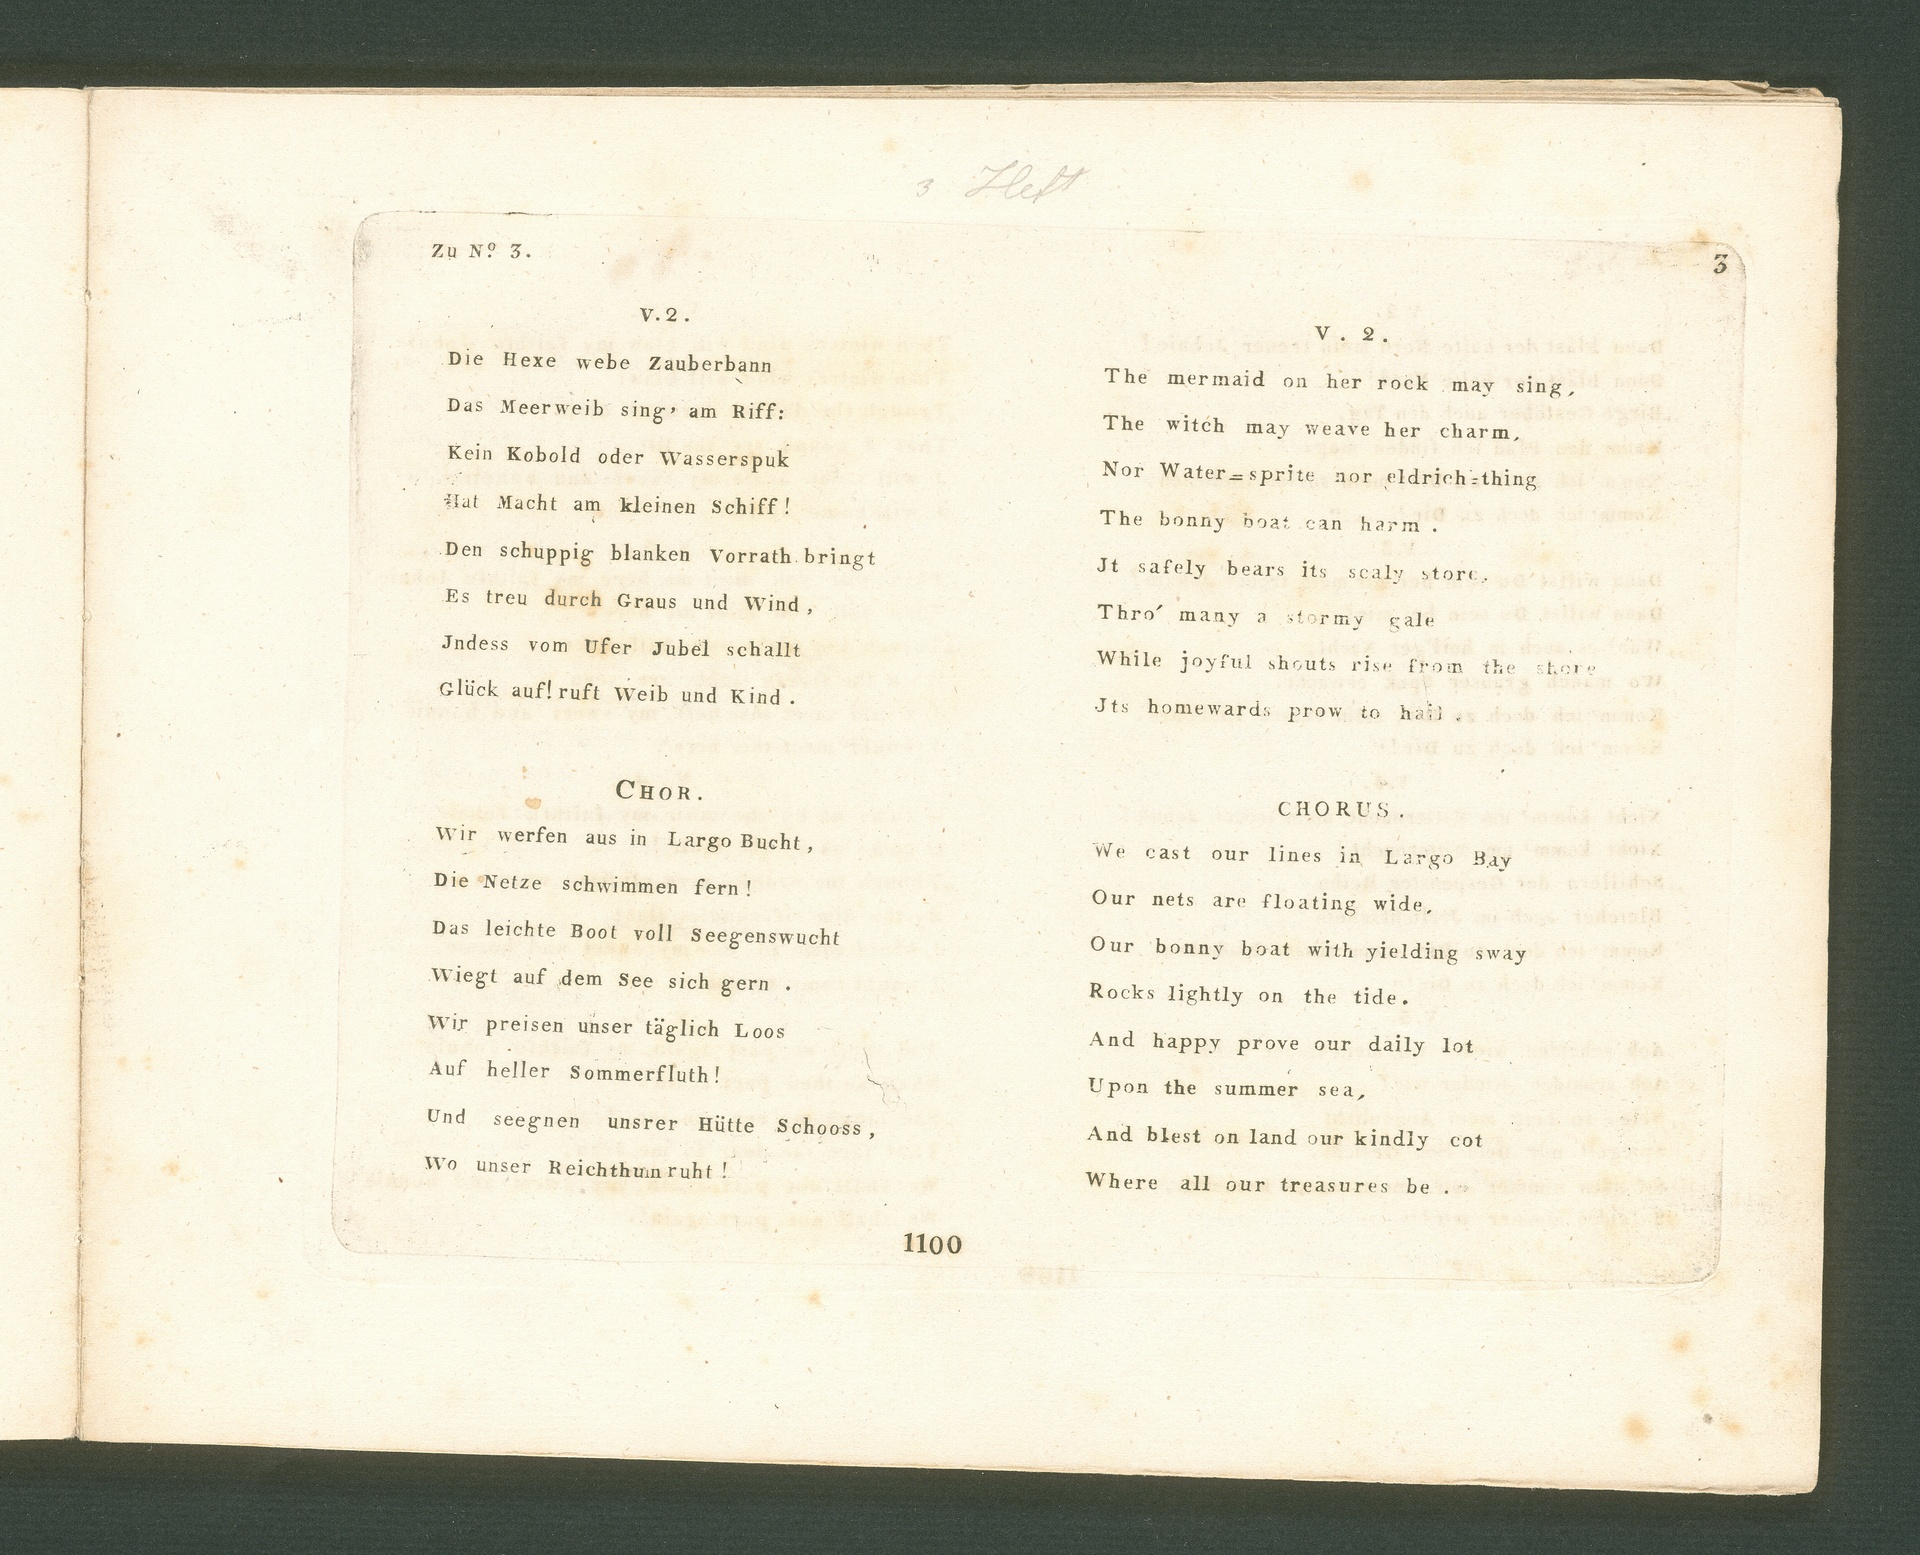 3 Heft
Zu Nº 3.
3
V.2.
Die Hexe webe Zauberbann
Das Meerweib sing' am Riff:
Kein Kobold oder Wasserspuk
Hat Macht am kleinen Schiff!
Den schuppig blanken Vorrath bringt
Es treu durch Graus und Wind,
Jndess vom Ufer Jubel schallt
Glück auf! ruft Weib und Kind.
CHOR.
Wir werfen aus in Largo Bucht,
Die Netze schwimmen fern!
Das leichte Boot voll Seegenswucht
Wiegt auf dem See sich gern.
Wir preisen unser täglich Loos
Auf heller Sommerfluth!
Und seegnen unsrer Hütte Schooss,
Wo unser Reichthum ruht!
V. 2.
The mermaid on her rock may sing,
The witch may weave her charm,
Nor Water=sprite nor eldrich=thing
The bonny boat can harm.
Jt safely bears its scaly store,
Thro' many a stormy gale
While joyful shouts rise from the shore
Jts homewards prow to hail.
CHORUS.
We cast our lines in Largo Bay
Our nets are floating wide,
Our bonny boat with yielding sway
Rocks lightly on the tide.
And happy prove our daily lot
Upon the summer sea,
And blest on land our kindly cot
Where all our treasures be.
1100